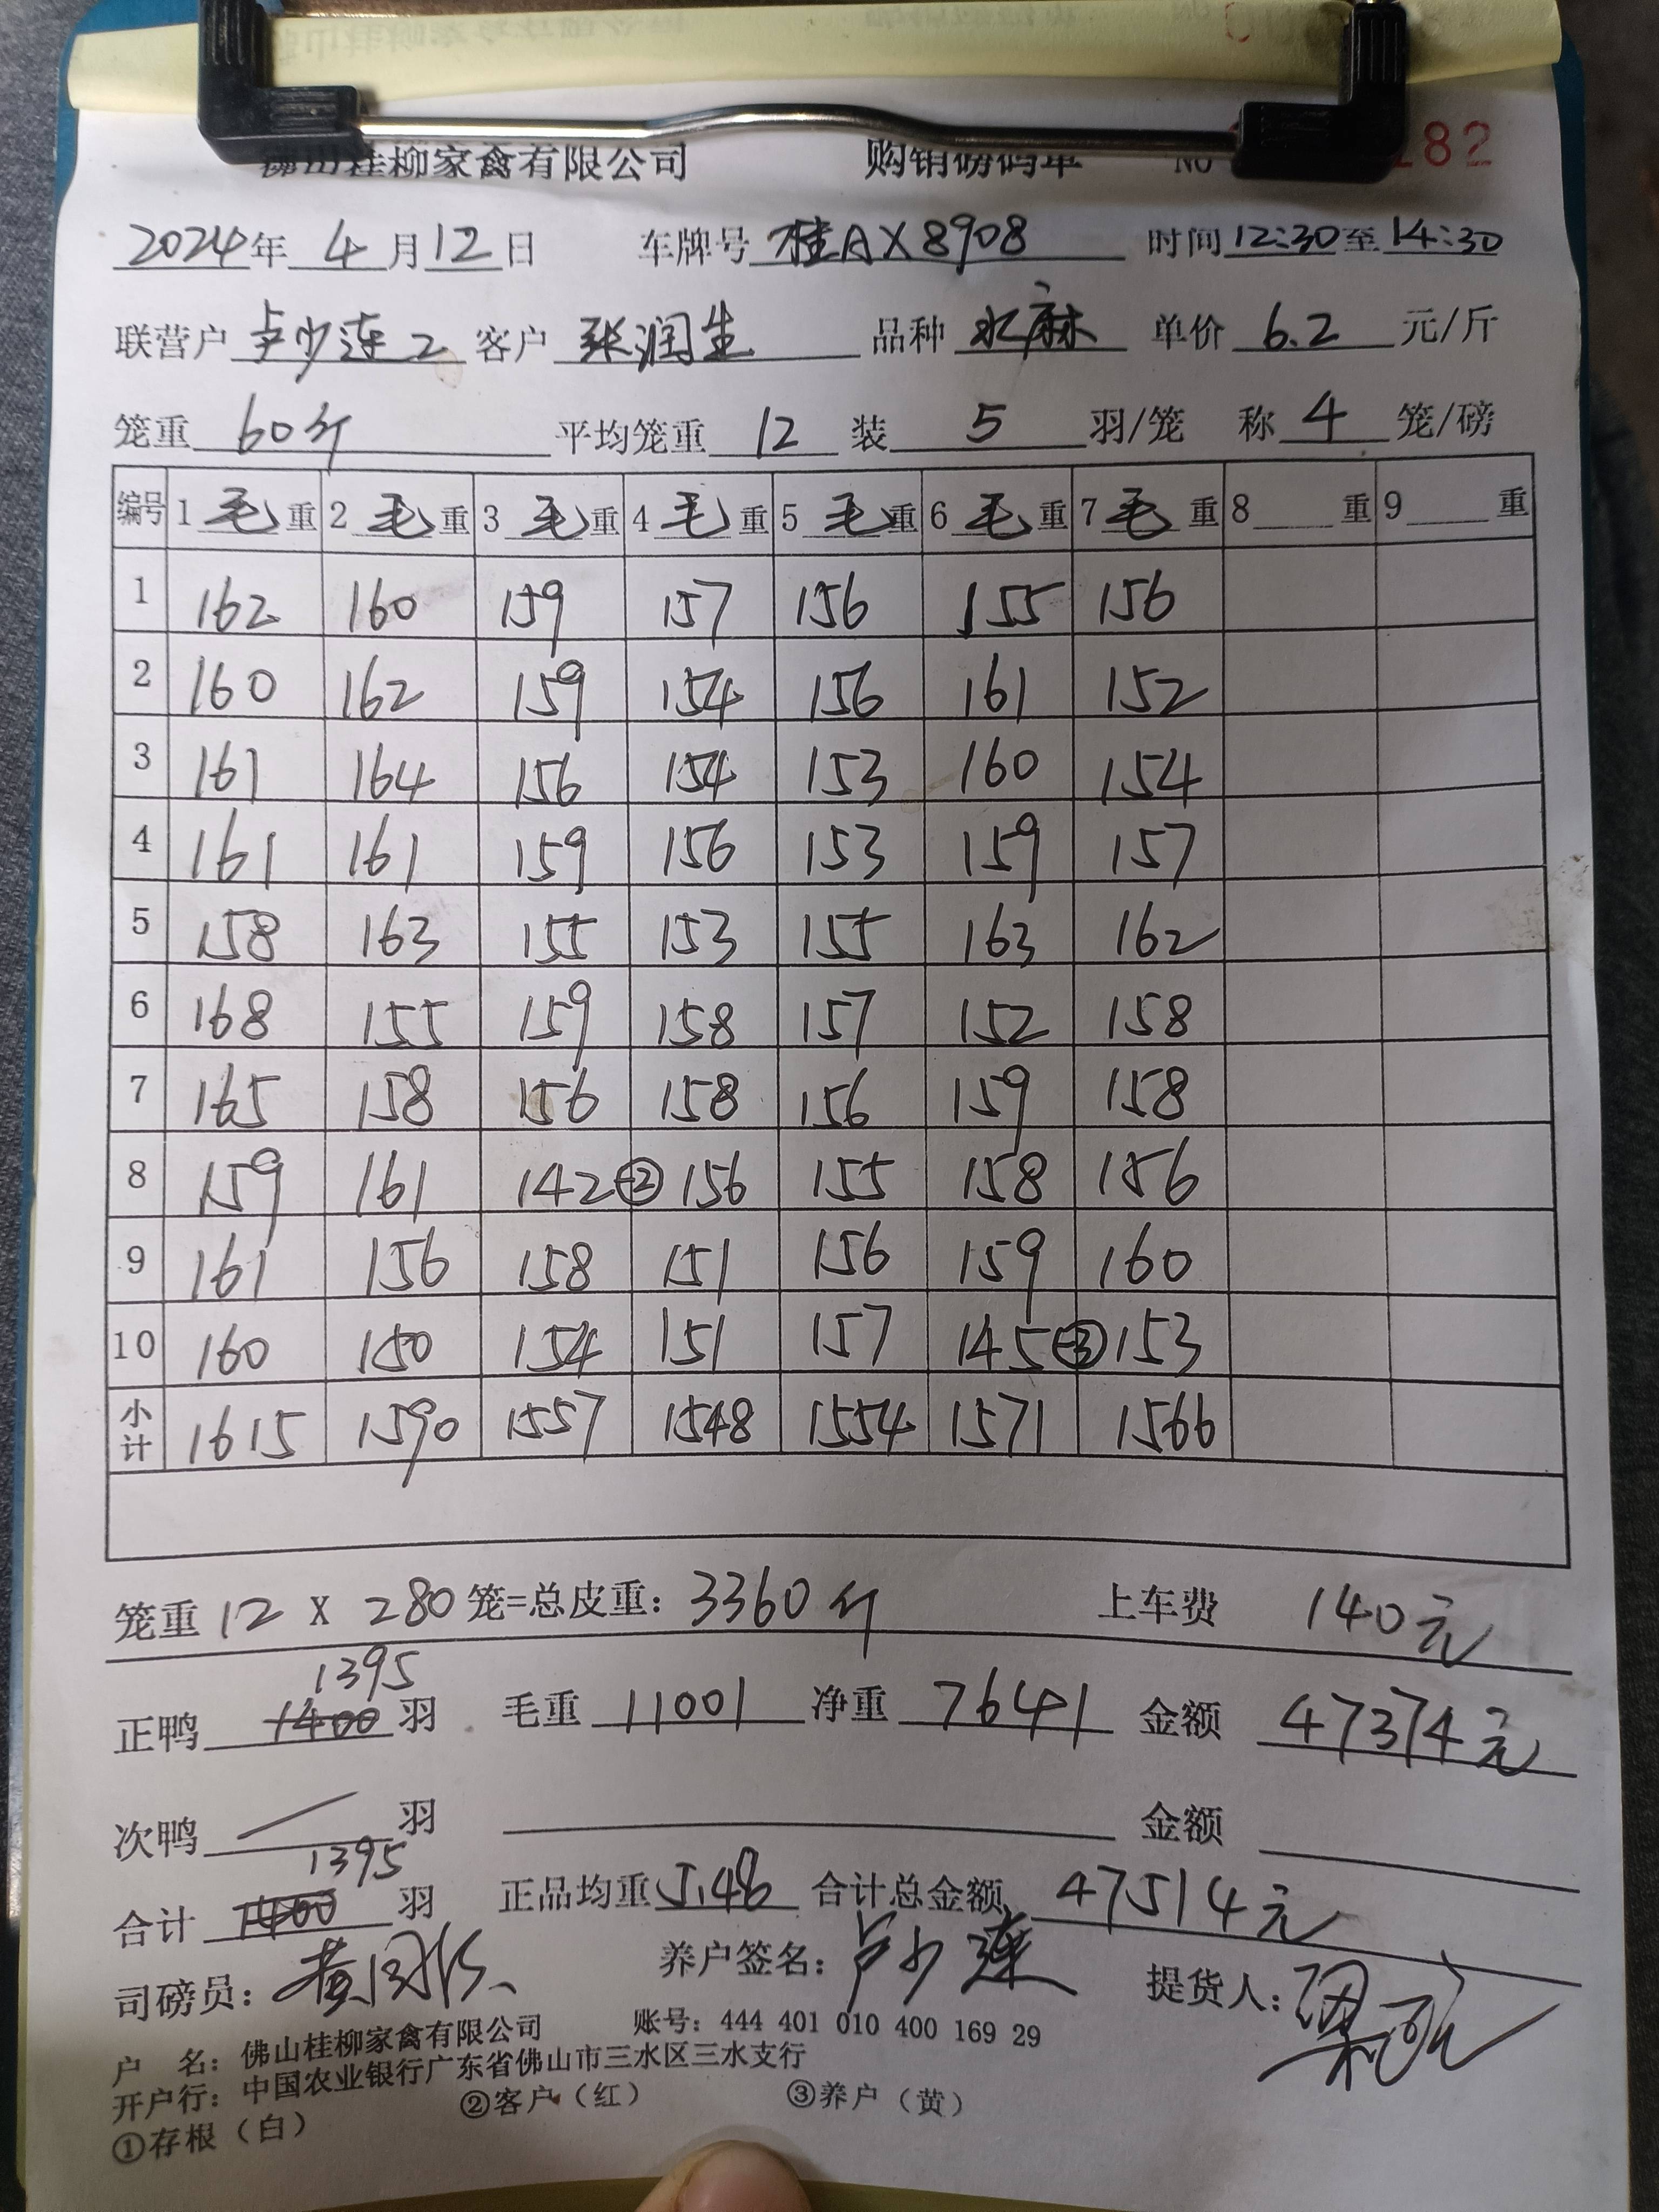 佛山桂柳家禽有限公司 购销磅码单 NO 182
2024年 4月12日 车牌号 桂AX8908 时间12:30至14:30
联营户 卢少连2 客户 张润生 品种 水麻 单价 6.2 元/斤
笼重 60斤 平均笼重 12 装 5 羽/笼 称 4 笼/磅
编号 1 毛 重 2 毛 重 3 毛 重 4 毛 重 5 毛 重 6 毛 重 7 毛 重 8 重 9 重
1 162 160 159 157 156 155 156
2 160 162 159 154 156 161 152
3 161 164 156 154 153 160 154
4 161 161 159 156 153 159 157
5 158 163 155 153 155 163 162
6 168 155 159 158 157 152 158
7 165 158 156 158 156 159 158
8 159 161 142 -2 156 155 158 156
9 161 156 158 151 156 159 160
10 160 150 154 151 157 145 -3 153
小计 1615 1590 1557 1548 1554 1571 1566
笼重 12 X 280 笼=总皮重: 3360斤 上车费 140元
1395
正鸭 1400 羽 毛重 11001 净重 7641 金额 47374元
次鸭 / 羽 金额
1395
合计 1400 羽 正品均重 5.48 合计总金额 47514元
司磅员: 养户签名: 卢少连 提货人:
户 名: 佛山桂柳家禽有限公司 账号: 444 401 010 400 169 29
开户行: 中国农业银行广东省佛山市三水区三水支行
①存根（白） ②客户（红） ③养户（黄）